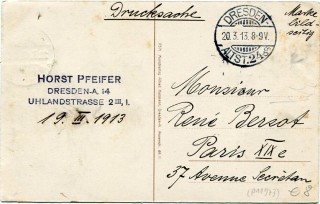 Drucksache
DRESDEN-
20.3.13. 8-9V.
ALTST. 24
Marke
seitig
HORST PFEIFER
DRESDEN-A. 14
UHLANDSTRASSE 2 III, I.
19. III. 1913
Monsieur
René Bersot
Paris XIXe
37 Avenue Secrétan